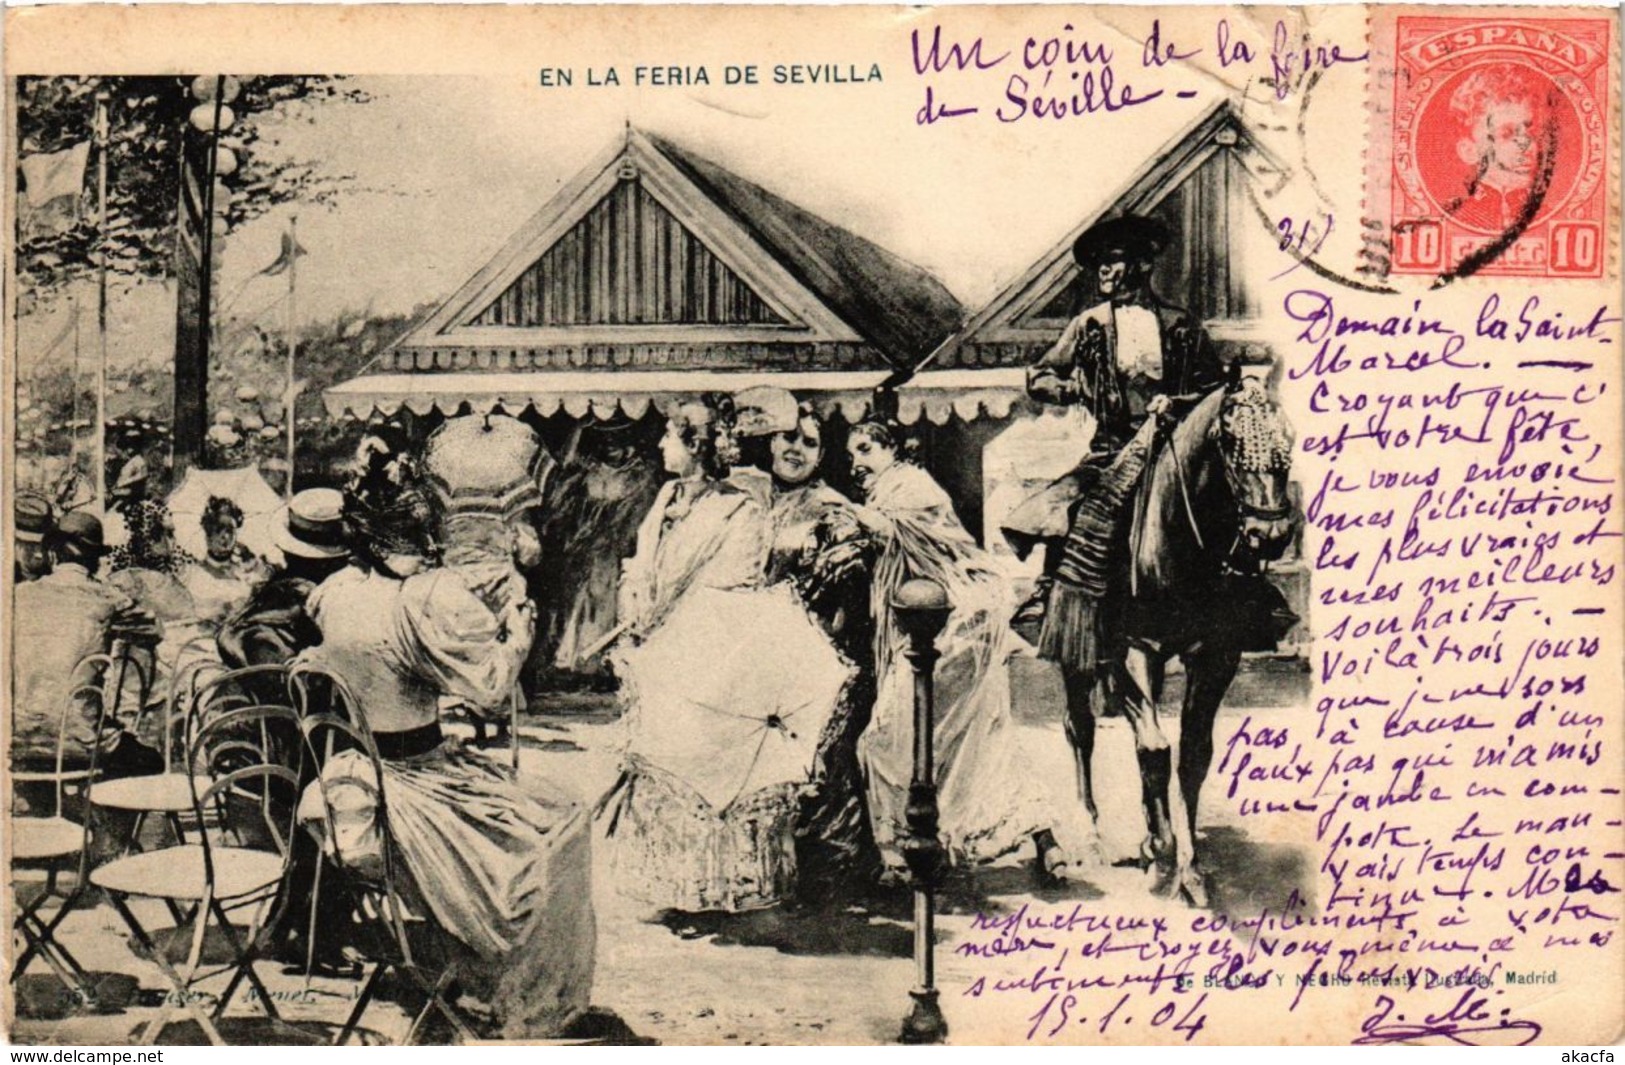 EN LA FERIA DE SEVILLA
Un coin de la foire
de Séville -
ESPAÑA
10 CENT. 10
31)
Demain la Saint-
Marcel. —
Croyant que c'
est votre fête,
je vous envoie
mes félicitations
les plus vraies et
mes meilleurs
souhaits. —
Voilà trois jours
que je ne sors
pas, à cause d'un
faux pas qui m'a mis
une jambe en com-
pote. Le mau-
vais temps con-
tinue. Mes
respectueux compliments à votre
mère, et croyez vous même à mes
sentiments les plus vrais.
15.1.04 J. M.
552 Hauser y Menet.
De BLANCO Y NEGRO Revista Ilustrada, Madrid
akacfa